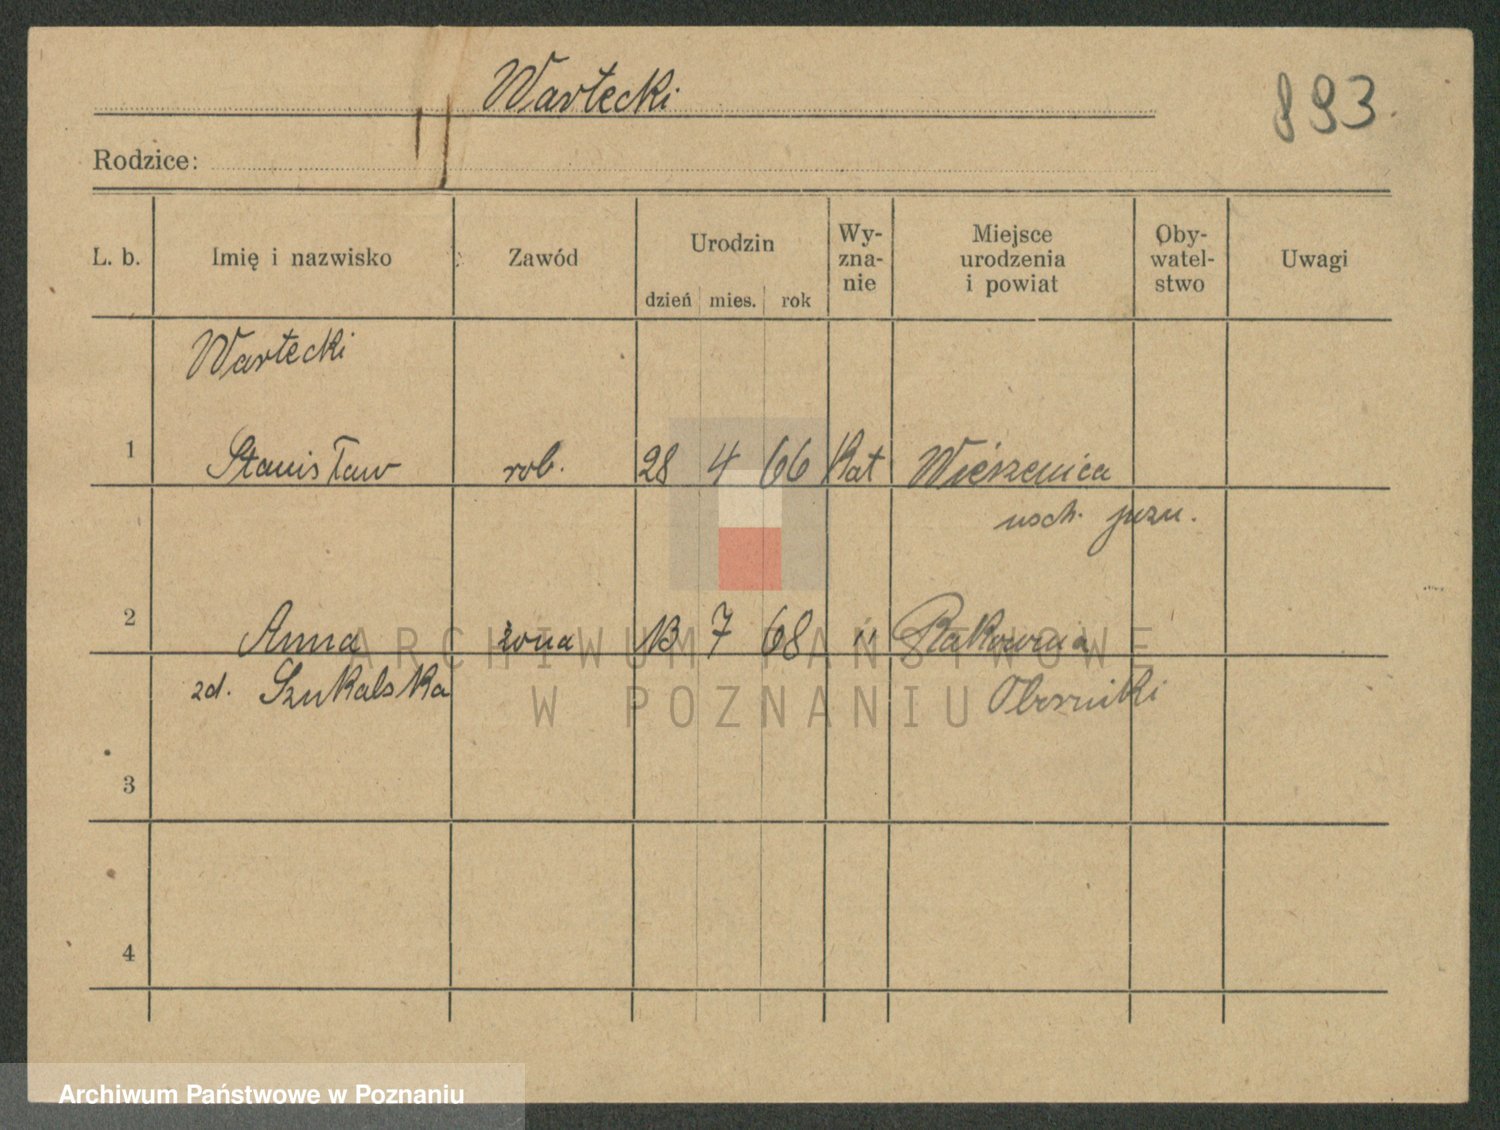 Wartecki
893.
Rodzice:
L. b.
Imię i nazwisko
Zawód
Urodzin
dzień mies. rok
Wy-
zna-
nie
Miejsce
urodzenia
i powiat
Oby-
watel-
stwo
Uwagi
Wartecki
1 Stanisław rob. 28 4 66 Kat Wierzenica
wsch. pozn.
2 Anna żona 13 7 68 " Rakowna
zd. Szukalska Oborniki
3
4
ARCHIWUM PAŃSTWOWE
W POZNANIU
Archiwum Państwowe w Poznaniu